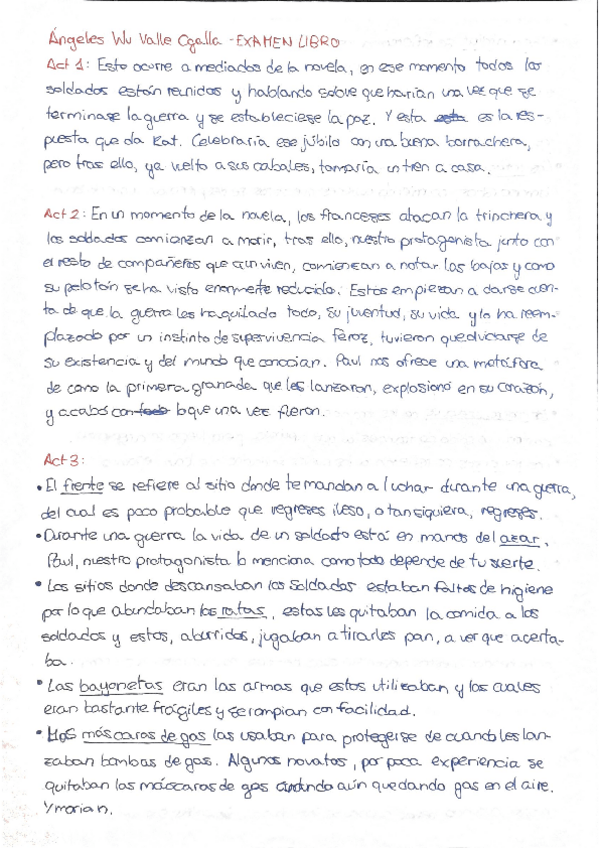 Ángeles Wu Valle Cgalla - EXAMEN LIBRO
Act 1: Esto ocurre a mediados de la novela, en ese momento todos los
soldados están reunidos y hablando sobre que harían una vez que se
terminase la guerra y se estableciese la paz. Y esta esta es la res-
puesta que da Kat. Celebraría ese júbilo con una buena borrachera,
pero tras ello, ya vuelto a sus cabales, tomaría un tren a casa.
Act 2: En un momento de la novela, los franceses atacan la trinchera y
los soldados comienzan a morir, tras ello, nuestro protagonista junto con
el resto de compañeros que aun viven, comienzan a notar las bajas y como
su pelotón se ha visto enormente reducido. Estos empiezan a darse cuen-
ta de que la guerra les ha quilado todo, su juventud, su vida y lo ha reem-
plazado por un instinto de supervivencia feroz, tuvieron que olvidarse de
su existencia y del mundo que conocian. Paul nos ofrece una metáfora
de como la primera granada que les lanzaron, explosionó en su corazón,
y acabó con todo lo que una vez fueron.
Act 3:
• El frente se refiere al sitio donde te mandan a luchar durante una guerra,
del cual es poco probable que regreses ileso, o tan siquiera, regreses.
• Durante una guerra la vida de un soldado está en manos del azar.
Paul, nuestro protagonista lo menciona como todo depende de tu suerte.
• Los sitios donde descansaban los soldados estaban faltos de higiene
por lo que abundaban las ratas, estas les quitaban la comida a los
soldados y estos, aburridos, jugaban a tirarles pan, a ver que acerta-
ba.
• Las bayonetas eran las armas que estos utilizaban y los cuales
eran bastante frágiles y se rompian con facilidad.
• Las máscaras de gas las usaban para protegerse de cuando les lan-
zaban bombas de gas. Algunos novatos, por poca experiencia se
quitaban las máscaras de gas cuando aún quedando gas en el aire.
Y morian.